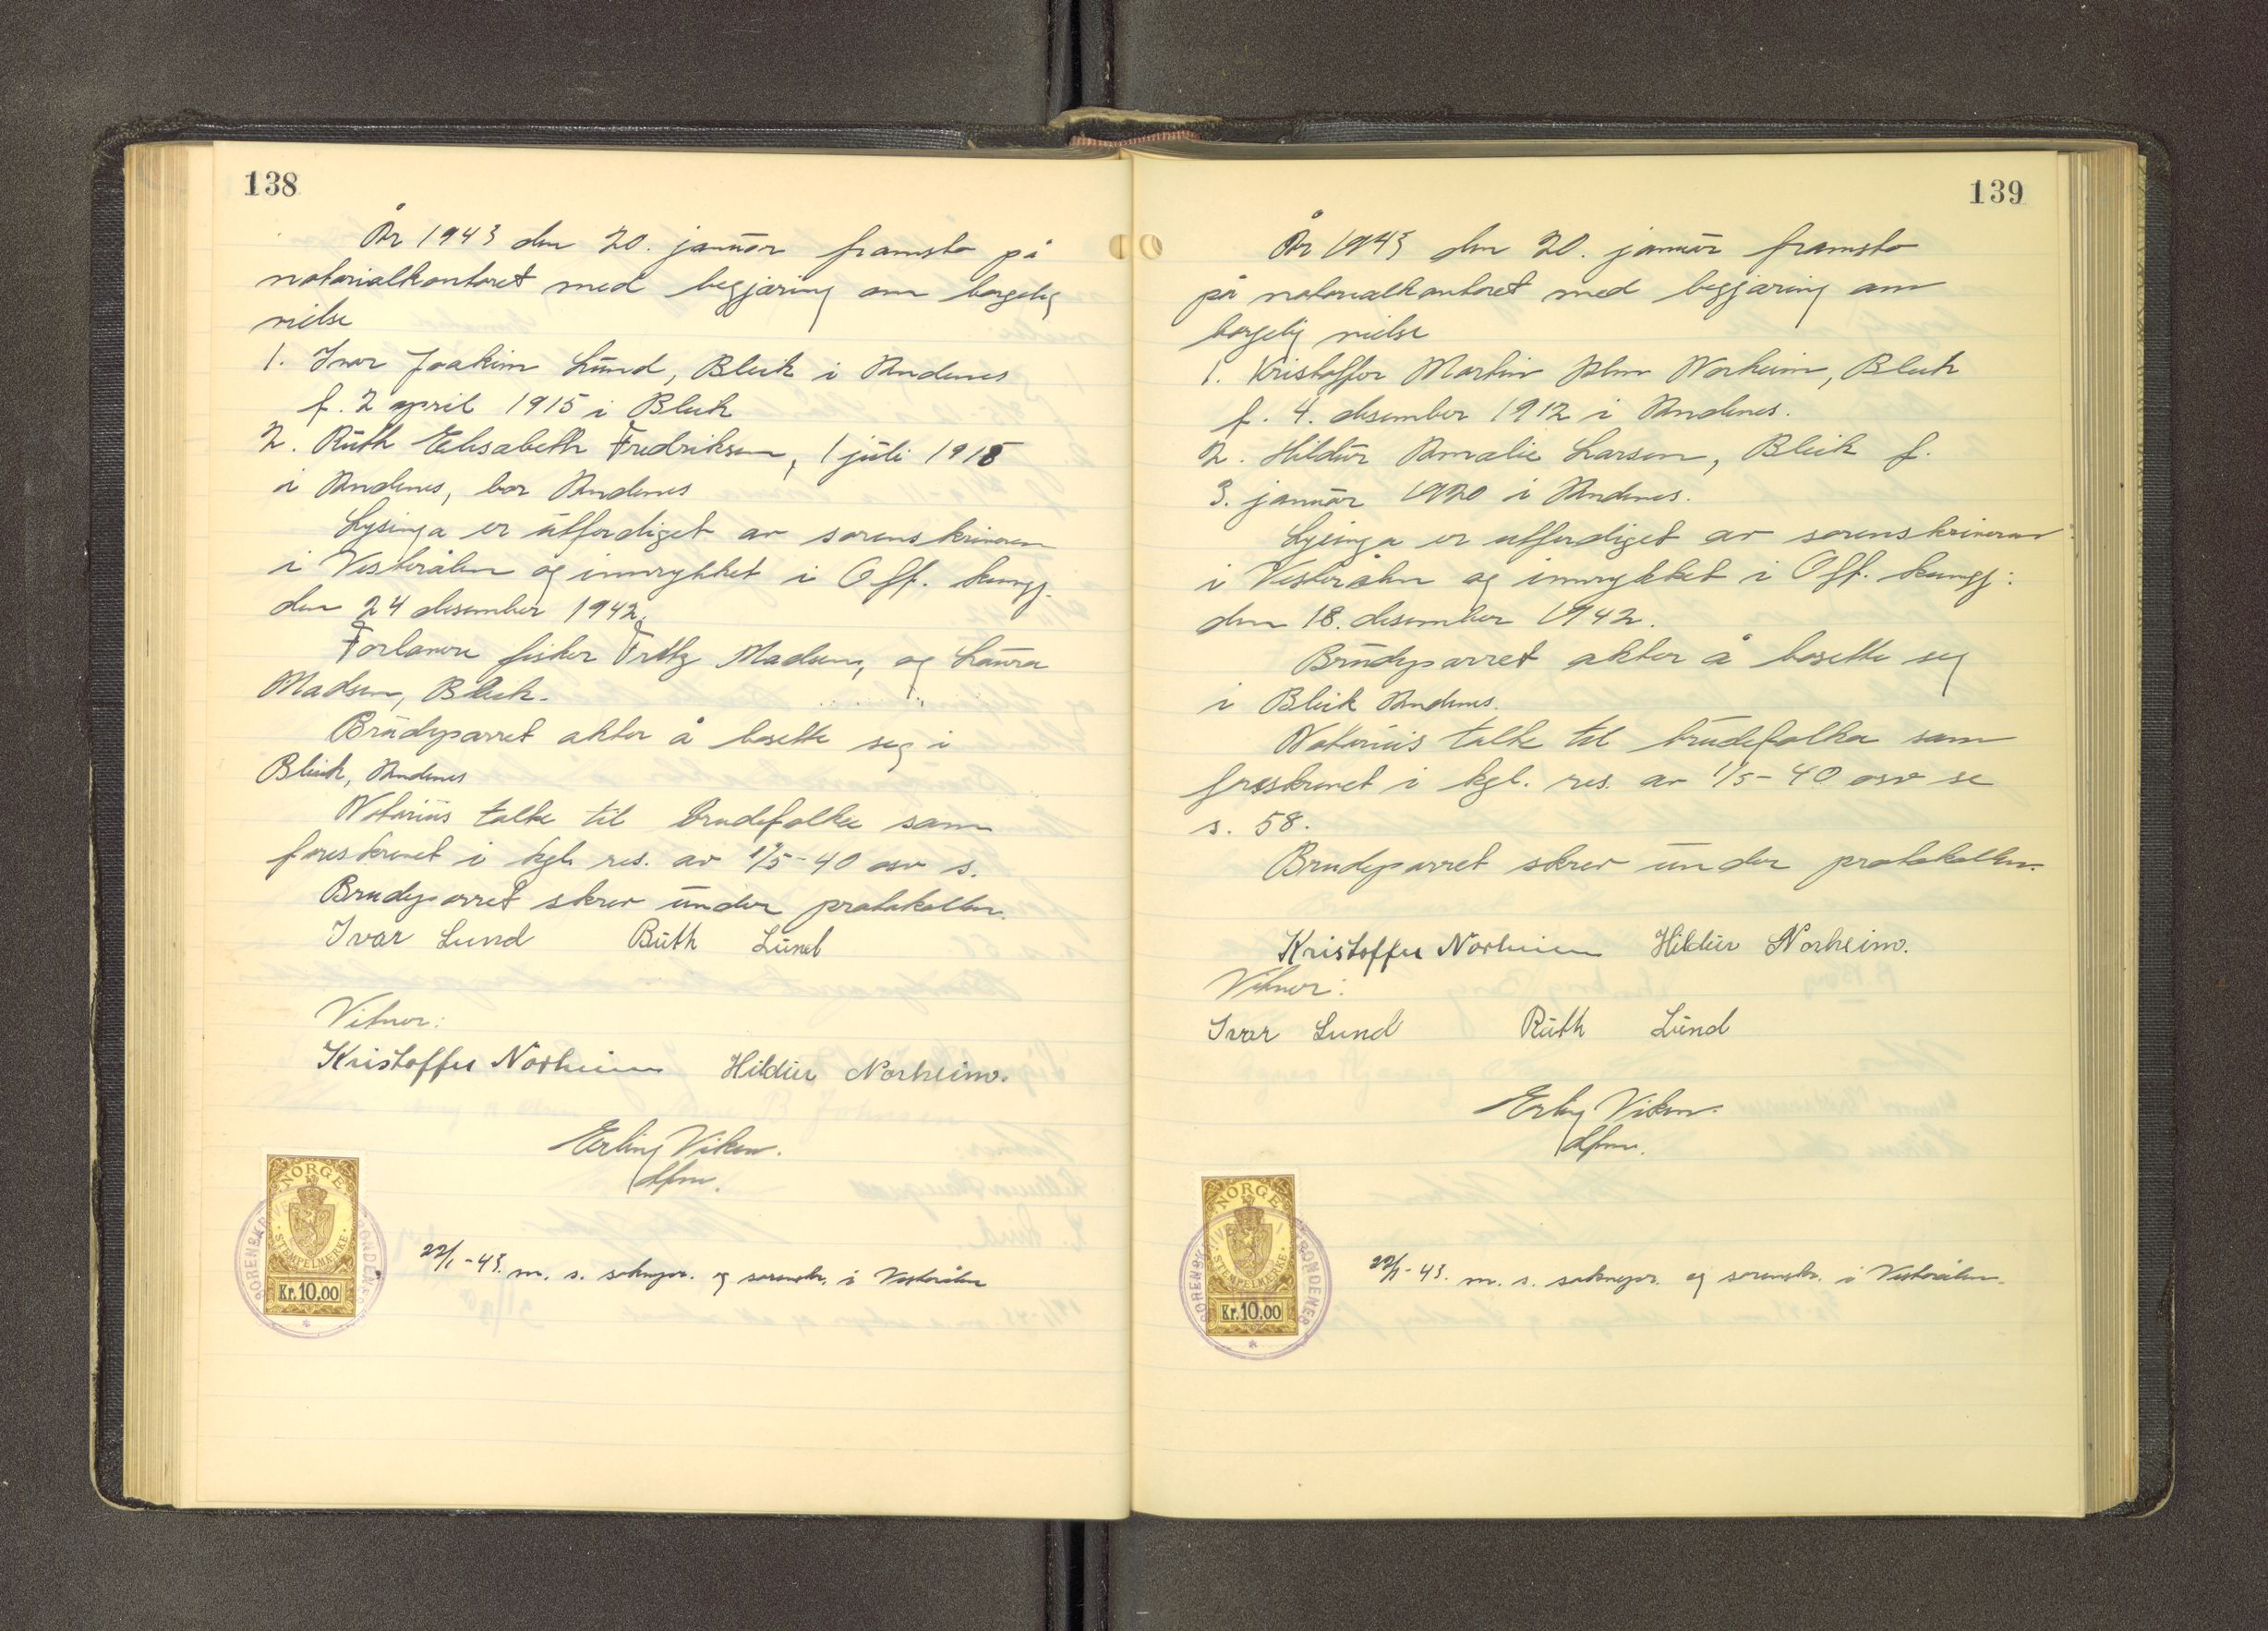 138
År 1943 den 20. januar framsto på
notorialkontoret med begjæring om borgelig
vielse
1. Ivar Joakim Lund, Bleik i Andenes
f. 2 april 1915 i Bleik
2. Ruth Elisabeth Fredriksen, 1 juli 1918
i Andenes, bor Andenes
Lysinga er utferdiget av sorenskriveren
i Vesterålen og innrykket i Off. kunngj.
den 24 desember 1942.
Forlovere fisker Fritz Madsen, og Laura
Madsen, Bleik.
Brudeparret akter å bosette seg i
Bleik, Andenes
Notarius talte til brudefolka som
foreskrevet i kgl. res. av 1/5-40 osv s.
Brudeparret skrev under protokollen.
Ivar Lund Ruth Lund
Vitner:
Kristoffer Norheim Hildur Norheim.
Erling Viken.
dfm.
NORGE
STEMPELMERKE
Kr. 10.00
22/1-43. m. s. sokнepr. og sorenskr. i Vesterålen
139
År 1943 den 20. januar framsto
på notorialkontoret med begjæring om
borgelig vielse
1. Kristoffer Martin John Norheim, Bleik
f. 4. desember 1912 i Andenes.
2. Hildur Amalie Larsen, Bleik f.
3. januar 1920 i Andenes.
Lysinga er utferdiget av sorenskriveren
i Vesterålen og innrykket i Off. kunngj:
den 18. desember 1942.
Brudeparret akter å bosette seg
i Bleik Andenes.
Notarius talte til brudefolka som
foreskrevet i kgl. res. av 1/5-40 osv se
s. 58.
Brudeparret skrev under protokollen.
Kristoffer Norheim Hildur Norheim.
Vitner:
Ivar Lund Ruth Lund
Erling Viken.
dfm.
NORGE
STEMPELMERKE
Kr. 10.00
22/1-43. m. s. soknepr. og sorenskr. i Vesterålen.